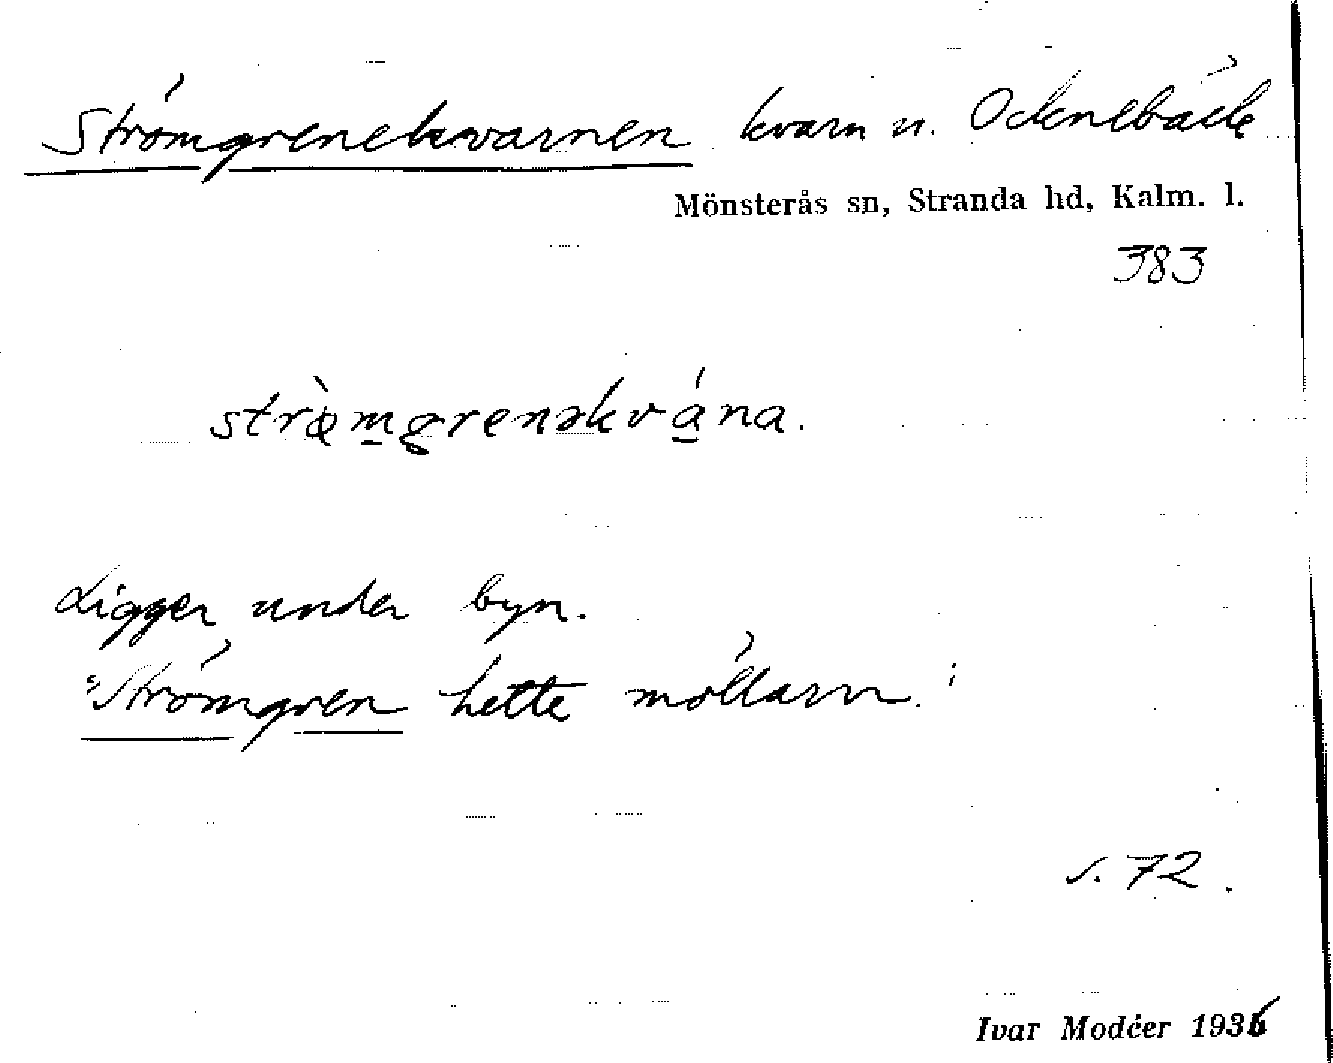 Strömgrenekvarnen kvarn u. Ocknebäck
Mönsterås sn, Stranda hd, Kalm. l.
383
strø̀m̲grenəkvá̲na.
Ligger under byn.
"Strömgren hette möllarn."
s. 72.
Ivar Modéer 1936